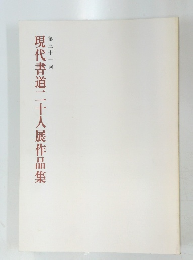 第二十一回
現代書道二十人展作品集